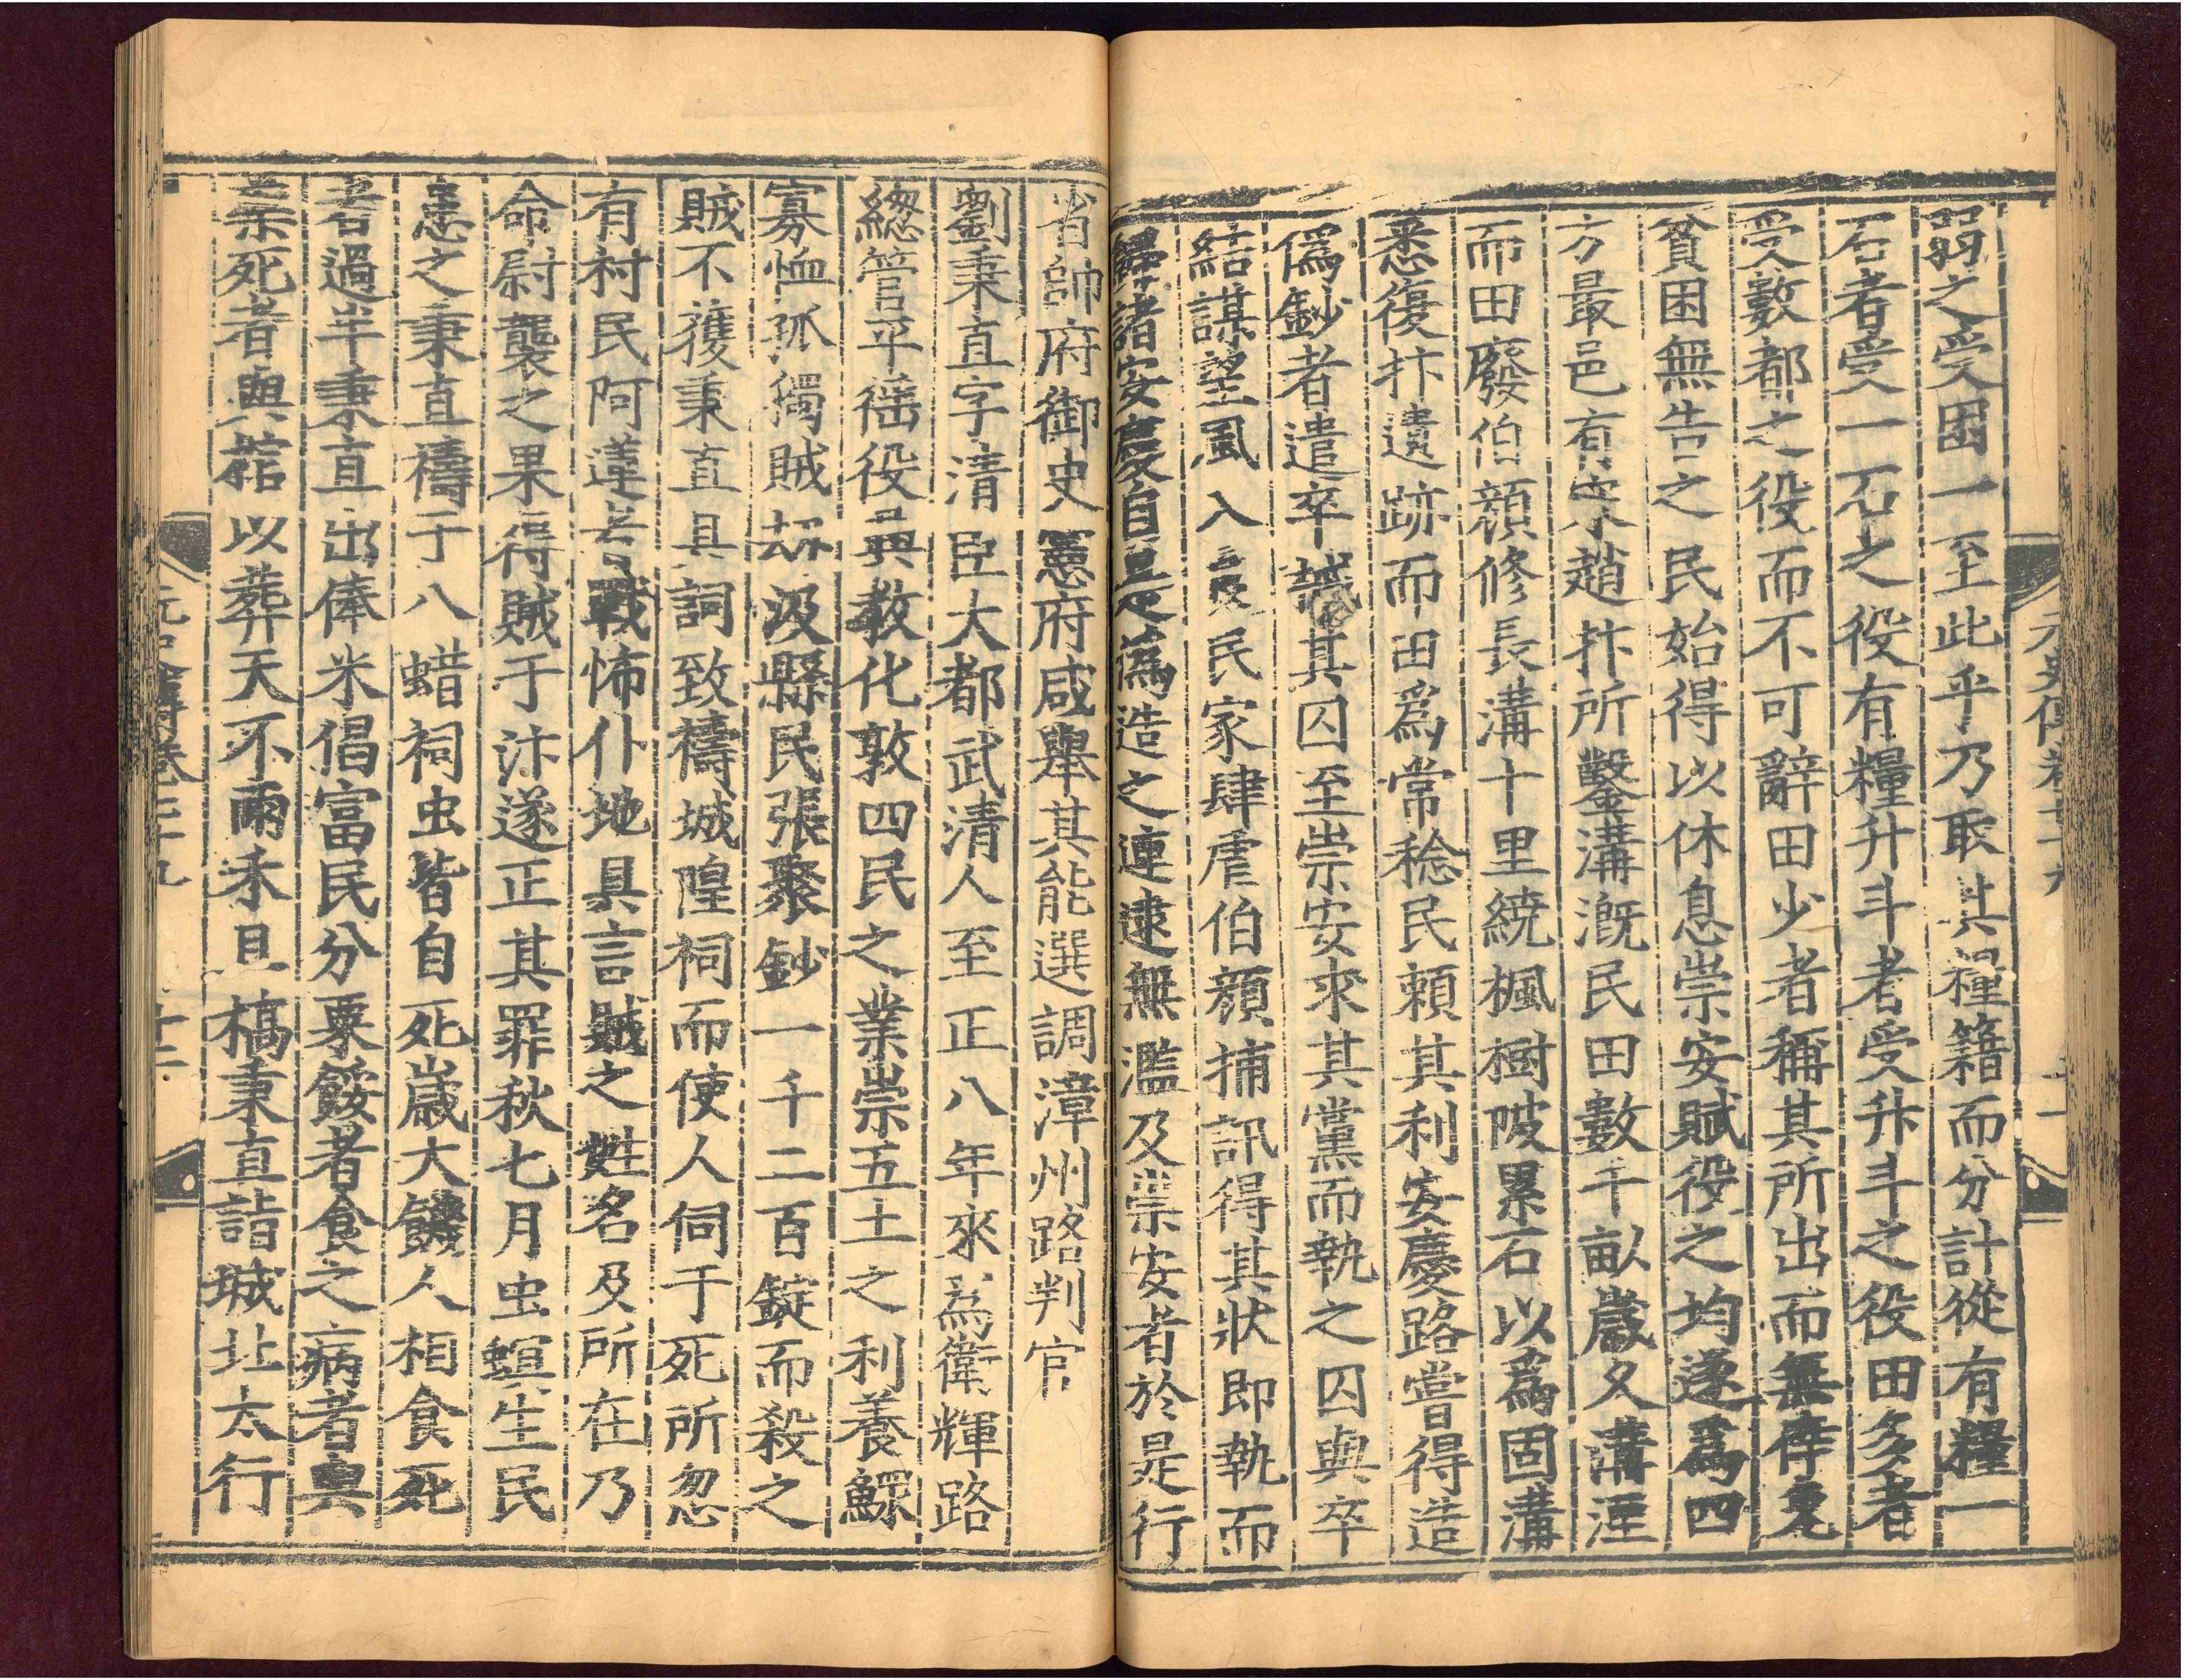 元史傳卷七十九
弱之受困一至此乎乃取其糧籍而分計從有糧一
石者受一石之役有糧升斗者受升斗之役田多者
受數都之役而不可辭田少者稱其所出而無倖免
貧困無告之民始得以休息崇安賦役之均遂爲四
方最邑有宋趙抃所鑿溝溉民田數千畝歲久溝湮
而田廢伯顔修長溝十里繞楓樹陂累石以爲固溝
悉復抃遺跡而田爲常稔民賴其利安慶路嘗得造
僞鈔者遣卒械其囚至崇安求其黨而執之囚與卒
結謀望風入良民家肆虐伯顔捕訊得其狀即執而
歸諸安慶自是僞造之連逮無濫及崇安者於是行
省帥府御史憲府咸舉其能選調漳州路判官
劉秉直字清臣大都武清人至正八年來爲衛輝路
緫管平徭役興教化敦四民之業崇五土之利養鰥
寡恤孤獨賊劫汲縣民張聚鈔一千二百錠而殺之
賊不獲秉直具詞致禱城隍祠而使人伺于死所忽
有村民阿蓮者戰怖仆地具言賊之姓名及所在乃
命尉襲之果得賊于汴遂正其罪秋七月虫螟生民
患之秉直禱于八蜡祠虫皆自死歲大饑人相食死
者過半秉直出俸米倡富民分粟餒者食之病者與
藥死者與棺以葬天不雨禾且槁秉直詣城北太行
元史傳卷七十九
十二